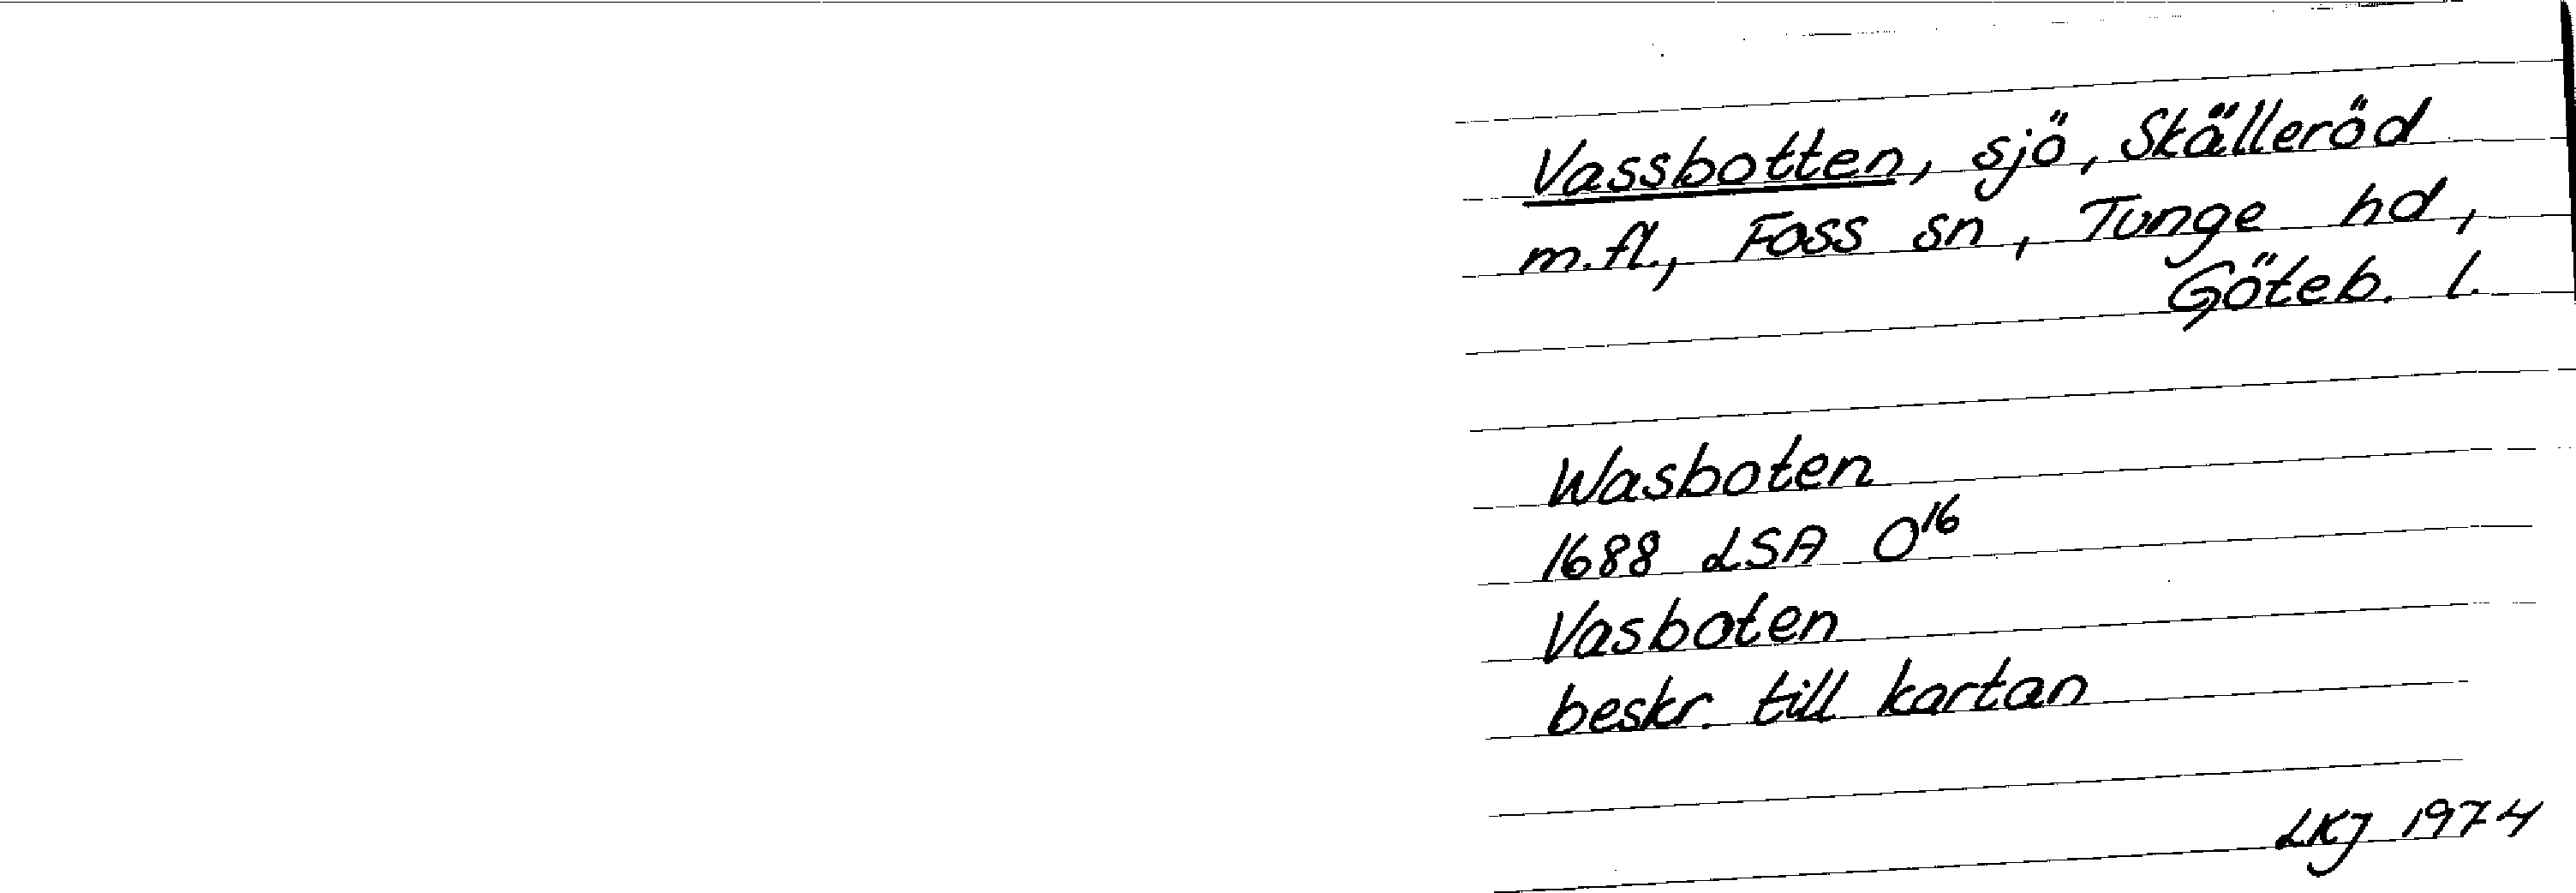 Vassbotten, sjö, Skälleröd
m.fl., Foss sn, Tunge hd,
Göteb. l.
Wasboten
1688 LSA O16
Vasboten
beskr. till kartan
LKJ 1974